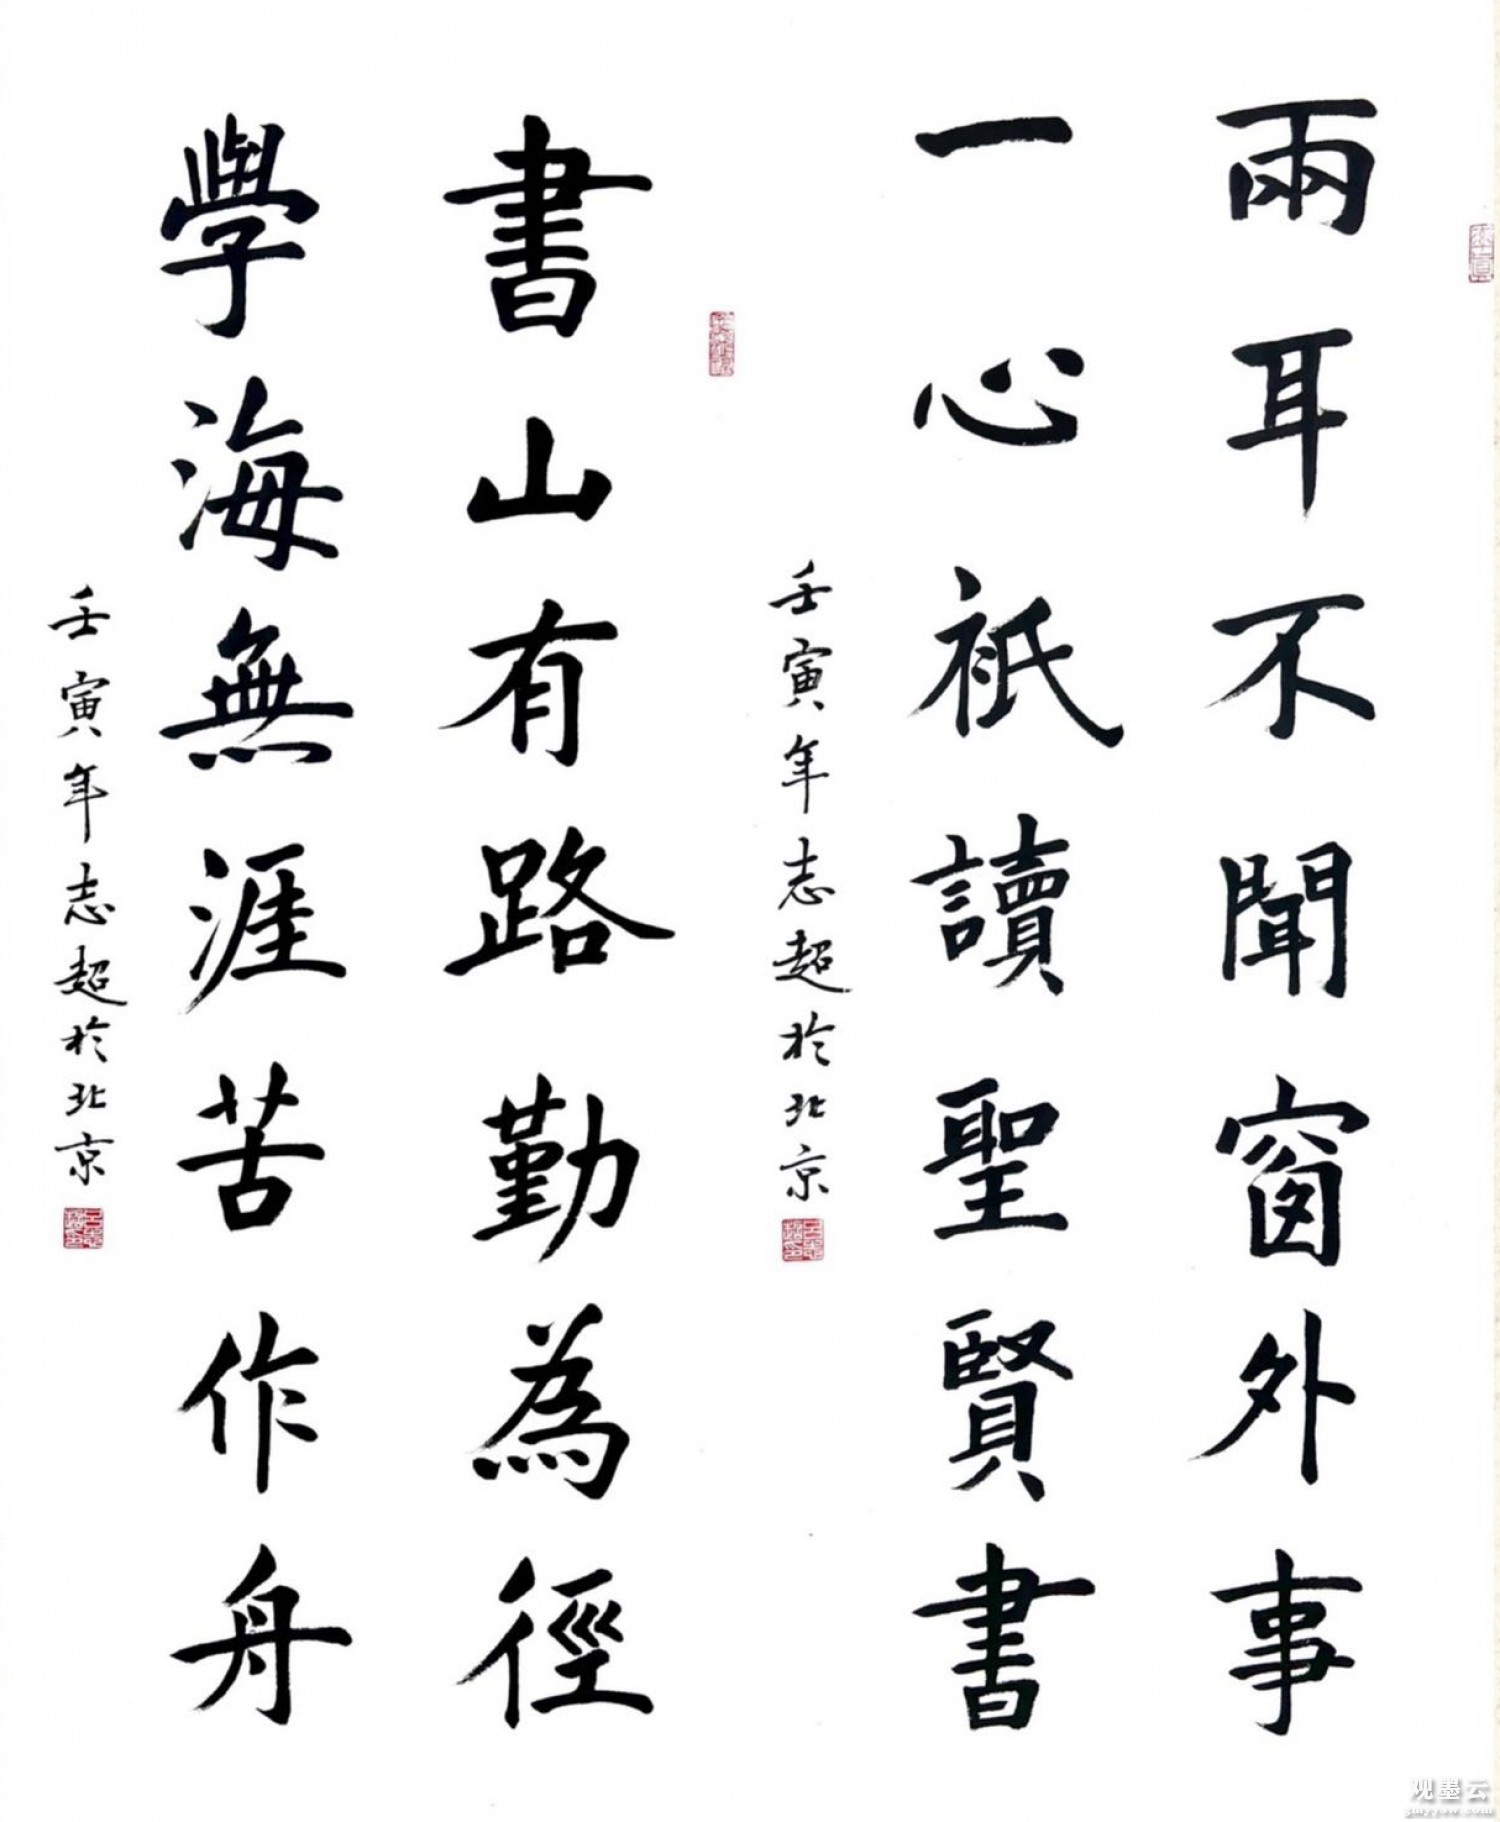 兩耳不聞窗外事
一心祇讀聖賢書
壬寅年志超於北京
書山有路勤為徑
學海無涯苦作舟
壬寅年志超於北京
观墨云
gmyyow.com